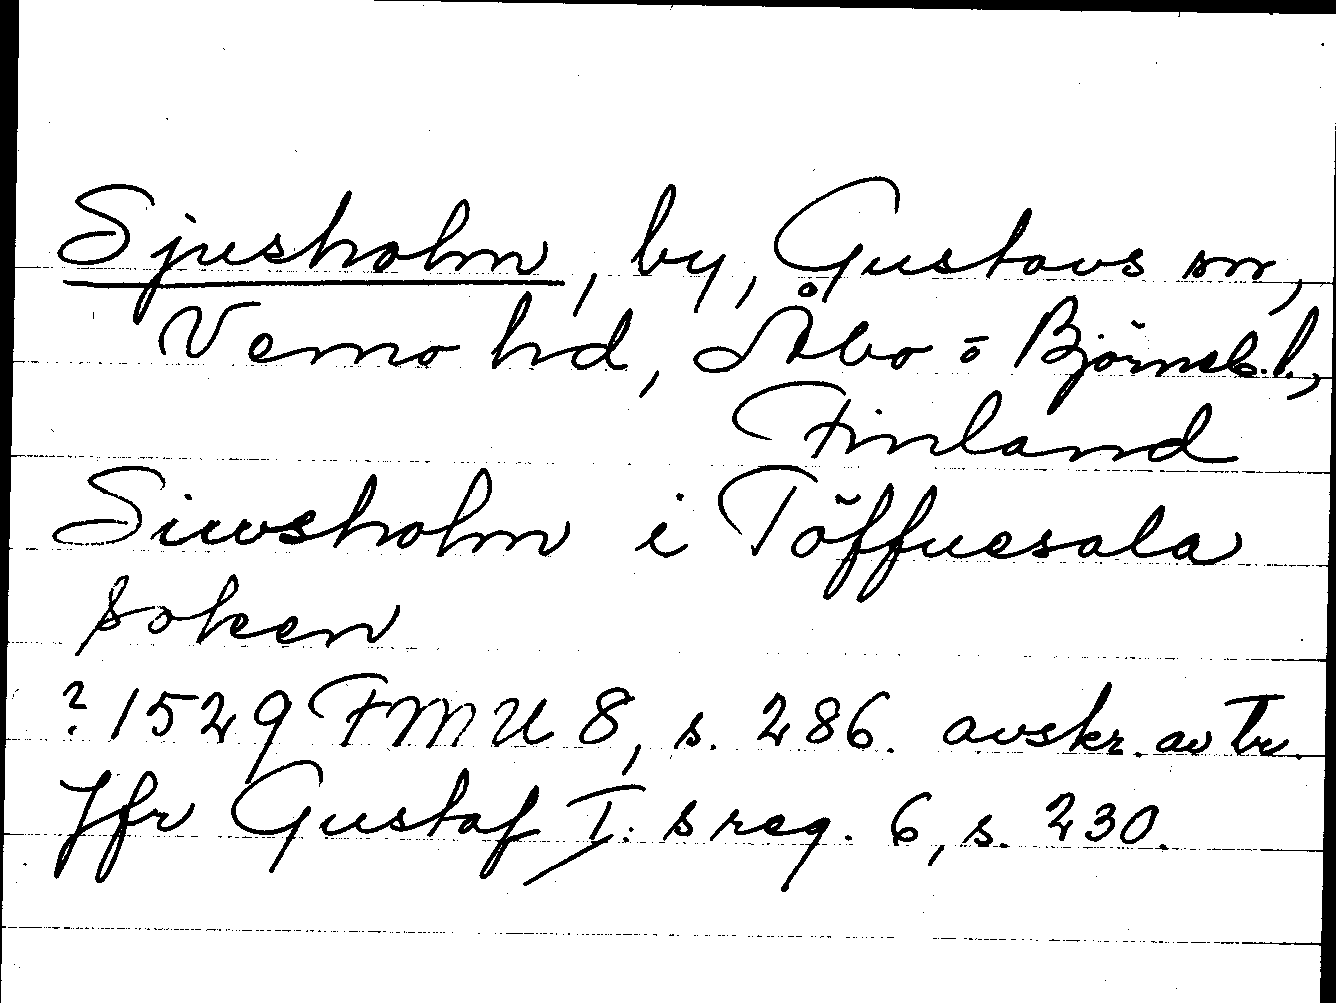 Sjusholm, by, Gustavs sn,
Vemo hd, Åbo o Björneb. l.,
Finland
Siwsholm i Töffuesala
soken
? 1529 FMU 8, s. 286. avskr. av tr.
Jfr Gustaf I:s reg. 6, s. 230.